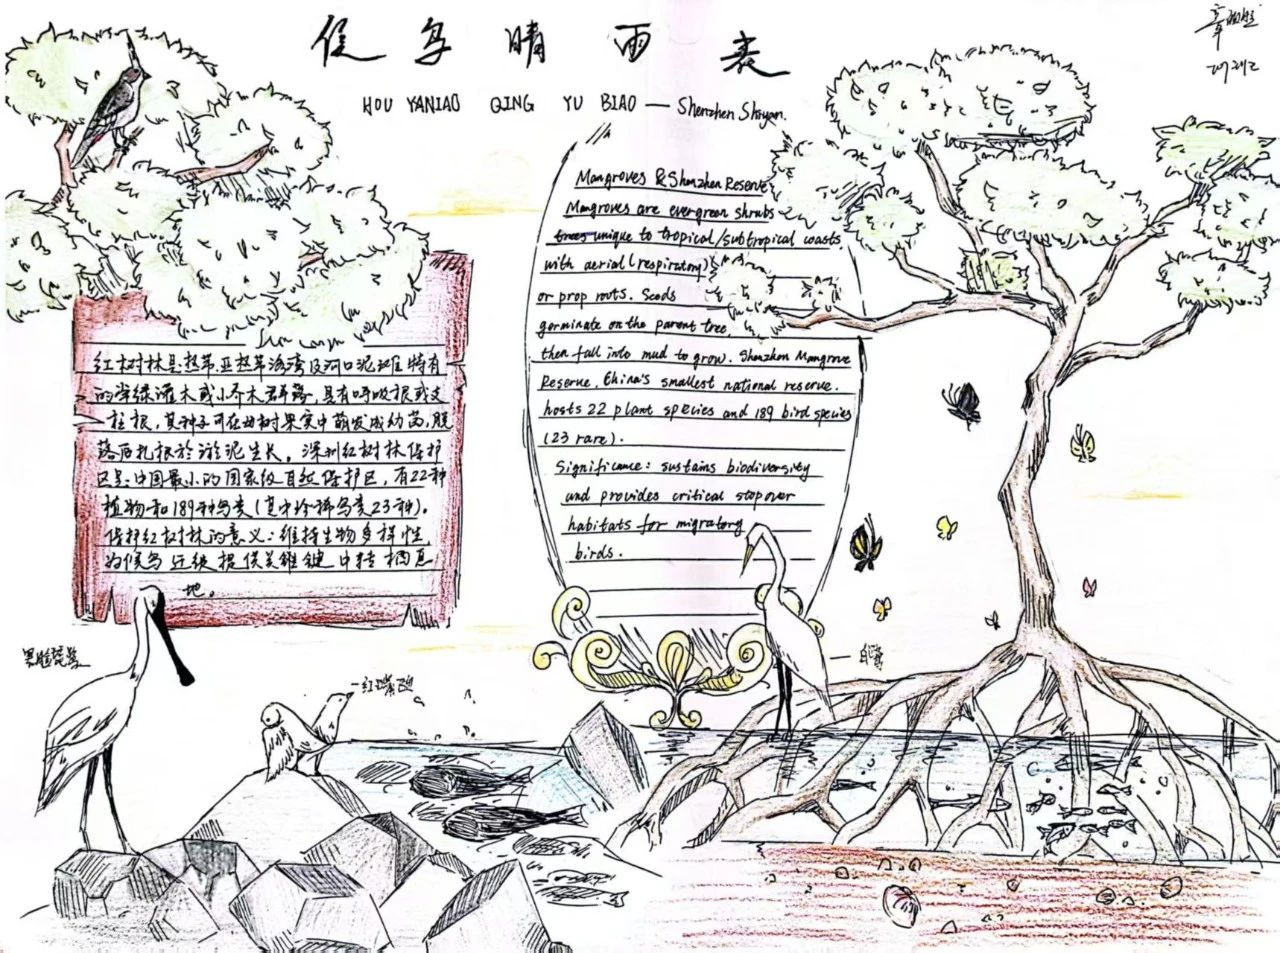 候鸟晴雨表
HOU YANIAO QING YU BIAO — Shenzhen Shiyan.
红树林是热带、亚热带海湾及河口泥滩特有
的常绿灌木或小乔木群落，具有呼吸根或支
柱根，其种子可在母树果实中萌发成幼苗，脱
落后扎根於淤泥生长。深圳红树林保护
区是中国最小的国家级自然保护区，有22种
植物和189种鸟类（其中珍稀鸟类23种）。
保护红树林的意义：维持生物多样性，
为候鸟迁徙提供关键中转栖息
地。
Mangroves & Shenzhen Reserve
Mangroves are evergreen shrubs
trees unique to tropical/subtropical coasts
with aerial (respiratory)
or prop roots. Seeds
germinate on the parent tree,
then fall into mud to grow. Shenzhen Mangrove
Reserve, China's smallest national reserve.
hosts 22 plant species and 189 bird species
(23 rare).
Significance: sustains biodiversity
and provides critical stopover
habitats for migratory
birds.
黑脸琵鹭
红嘴鸥
白鹭